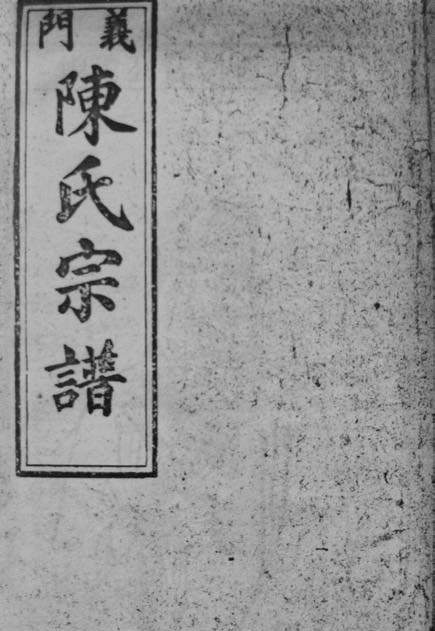 義門
陳氏宗譜